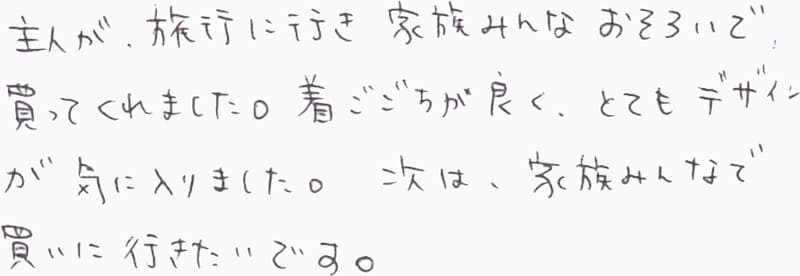 主人が、旅行に行き 家族みんな おそろいで、
買ってくれました。着ごごちが良く、とても デザイン
が 気に入りました。 次は、家族みんなで
買いに 行きたいです。